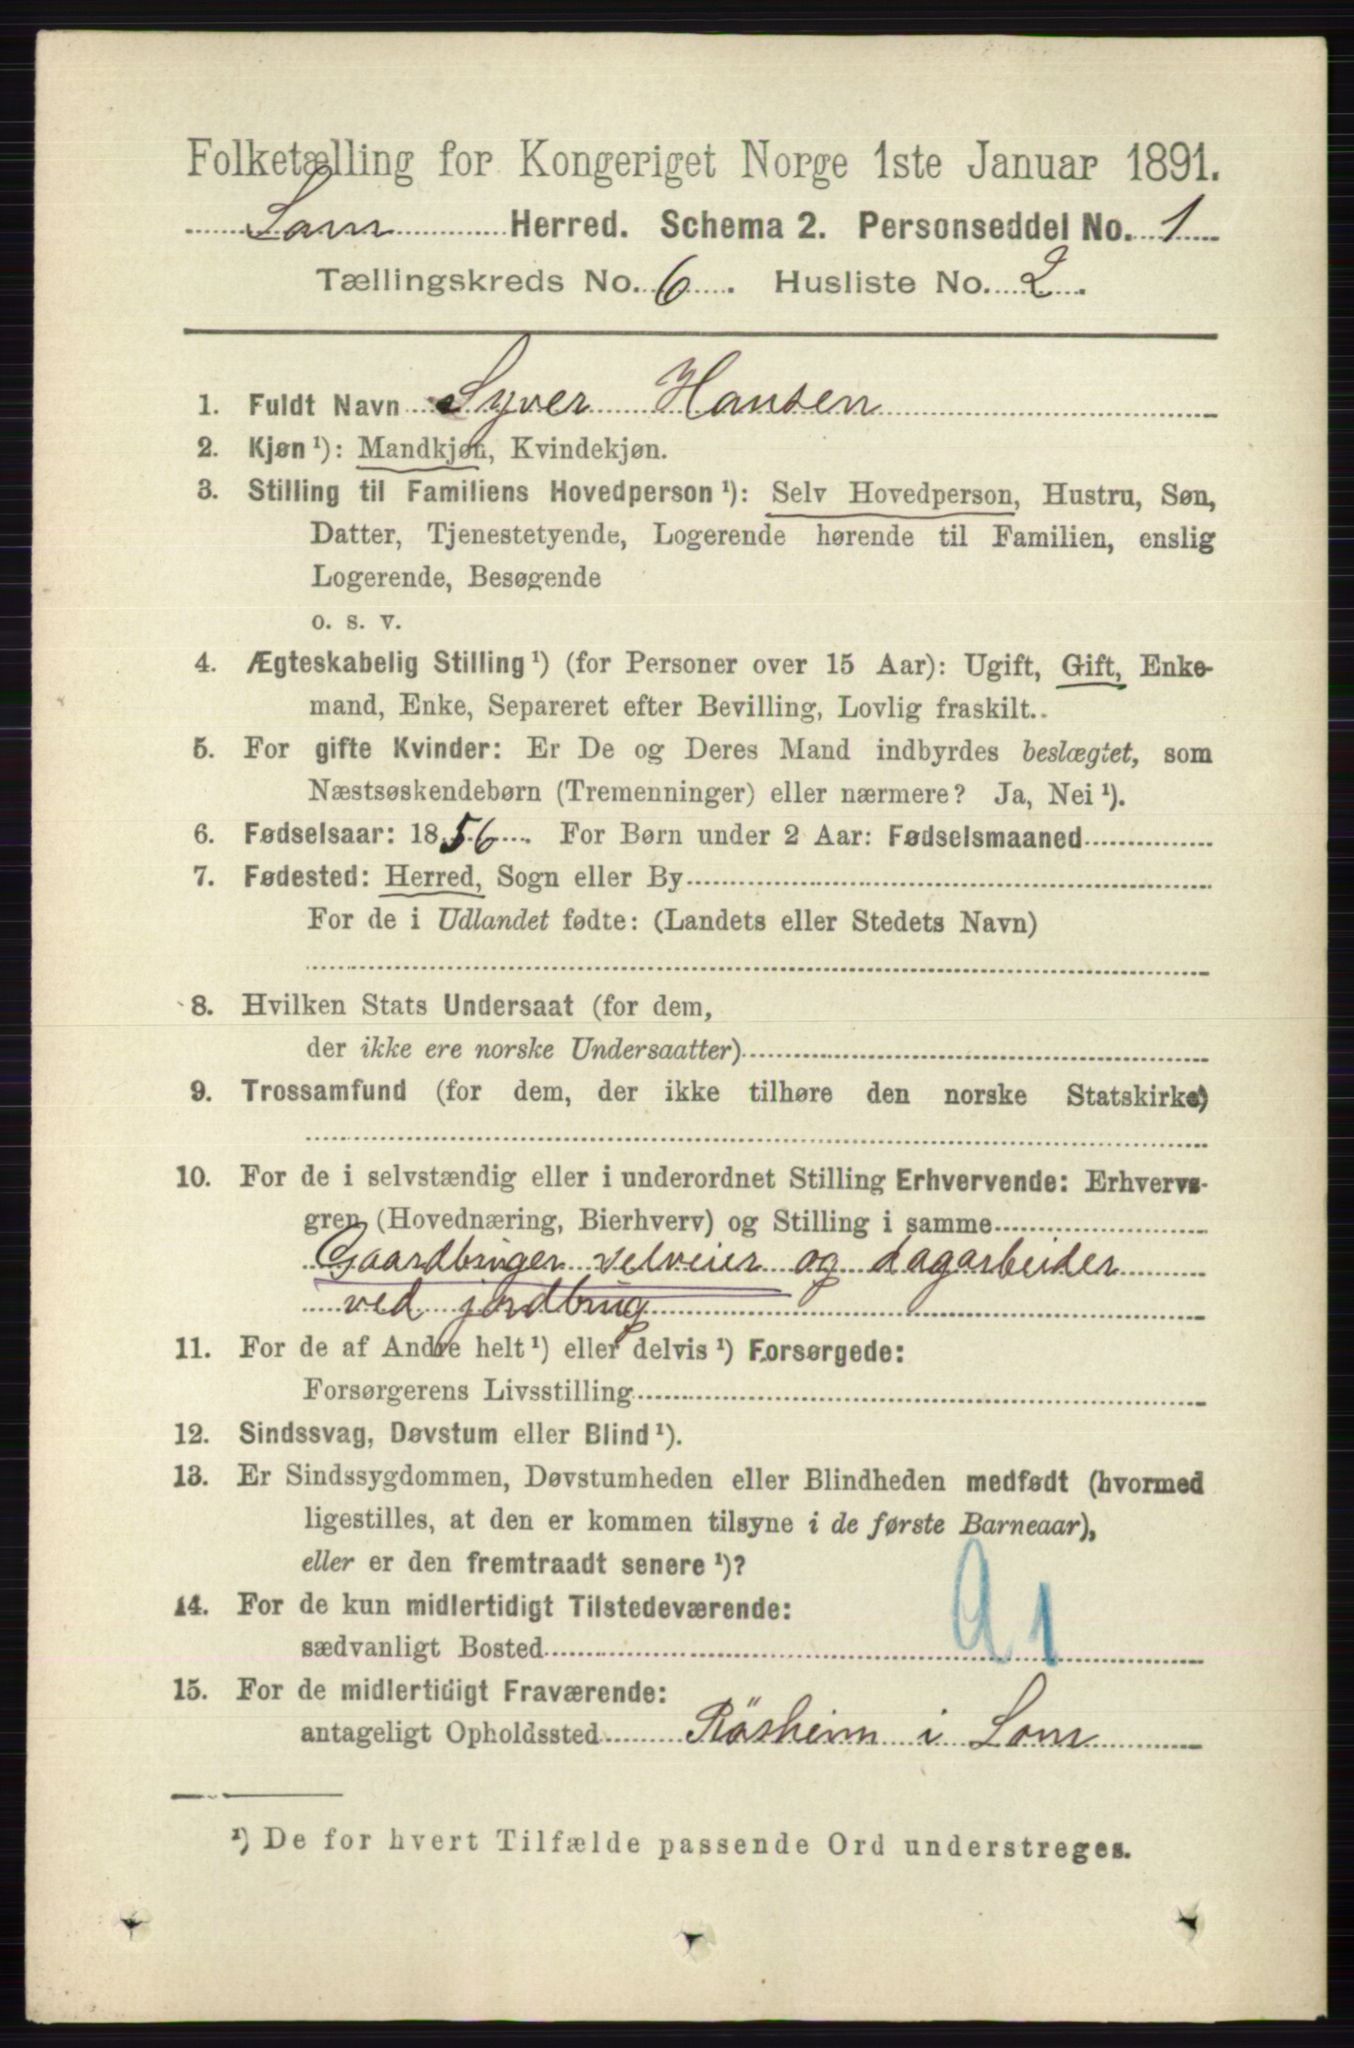 Folketælling for Kongeriget Norge 1ste Januar 1891.
Lom Herred. Schema 2. Personseddel No. 1
Tællingskreds No. 6. Husliste No. 2.
1. Fuldt Navn Syver Hansen
2. Kjøn ¹): Mandkjøn, Kvindekjøn.
3. Stilling til Familiens Hovedperson ¹): Selv Hovedperson, Hustru, Søn,
Datter, Tjenestetyende, Logerende hørende til Familien, enslig
Logerende, Besøgende
o. s. v.
4. Ægteskabelig Stilling ¹) (for Personer over 15 Aar): Ugift, Gift, Enke-
mand, Enke, Separeret efter Bevilling, Lovlig fraskilt..
5. For gifte Kvinder: Er De og Deres Mand indbyrdes beslægtet, som
Næstsøskendebørn (Tremenninger) eller nærmere? Ja, Nei ¹).
6. Fødselsaar: 1856. For Børn under 2 Aar: Fødselsmaaned
7. Fødested: Herred, Sogn eller By
For de i Udlandet fødte: (Landets eller Stedets Navn)
8. Hvilken Stats Undersaat (for dem,
der ikke ere norske Undersaatter)
9. Trossamfund (for dem, der ikke tilhøre den norske Statskirke)
10. For de i selvstændig eller i underordnet Stilling Erhvervende: Erhvervs-
gren (Hovednæring, Bierhverv) og Stilling i samme
Gaardbruger selveier og dagarbeider
ved jordbrug
11. For de af Andre helt ¹) eller delvis ¹) Forsørgede:
Forsørgerens Livsstilling
12. Sindssvag, Døvstum eller Blind ¹).
13. Er Sindssygdommen, Døvstumheden eller Blindheden medfødt (hvormed
ligestilles, at den er kommen tilsyne i de første Barneaar),
eller er den fremtraadt senere ¹)?
14. For de kun midlertidigt Tilstedeværende:
sædvanligt Bosted
15. For de midlertidigt Fraværende:
antageligt Opholdssted Röisheim i Lom
¹) De for hvert Tilfælde passende Ord understreges.